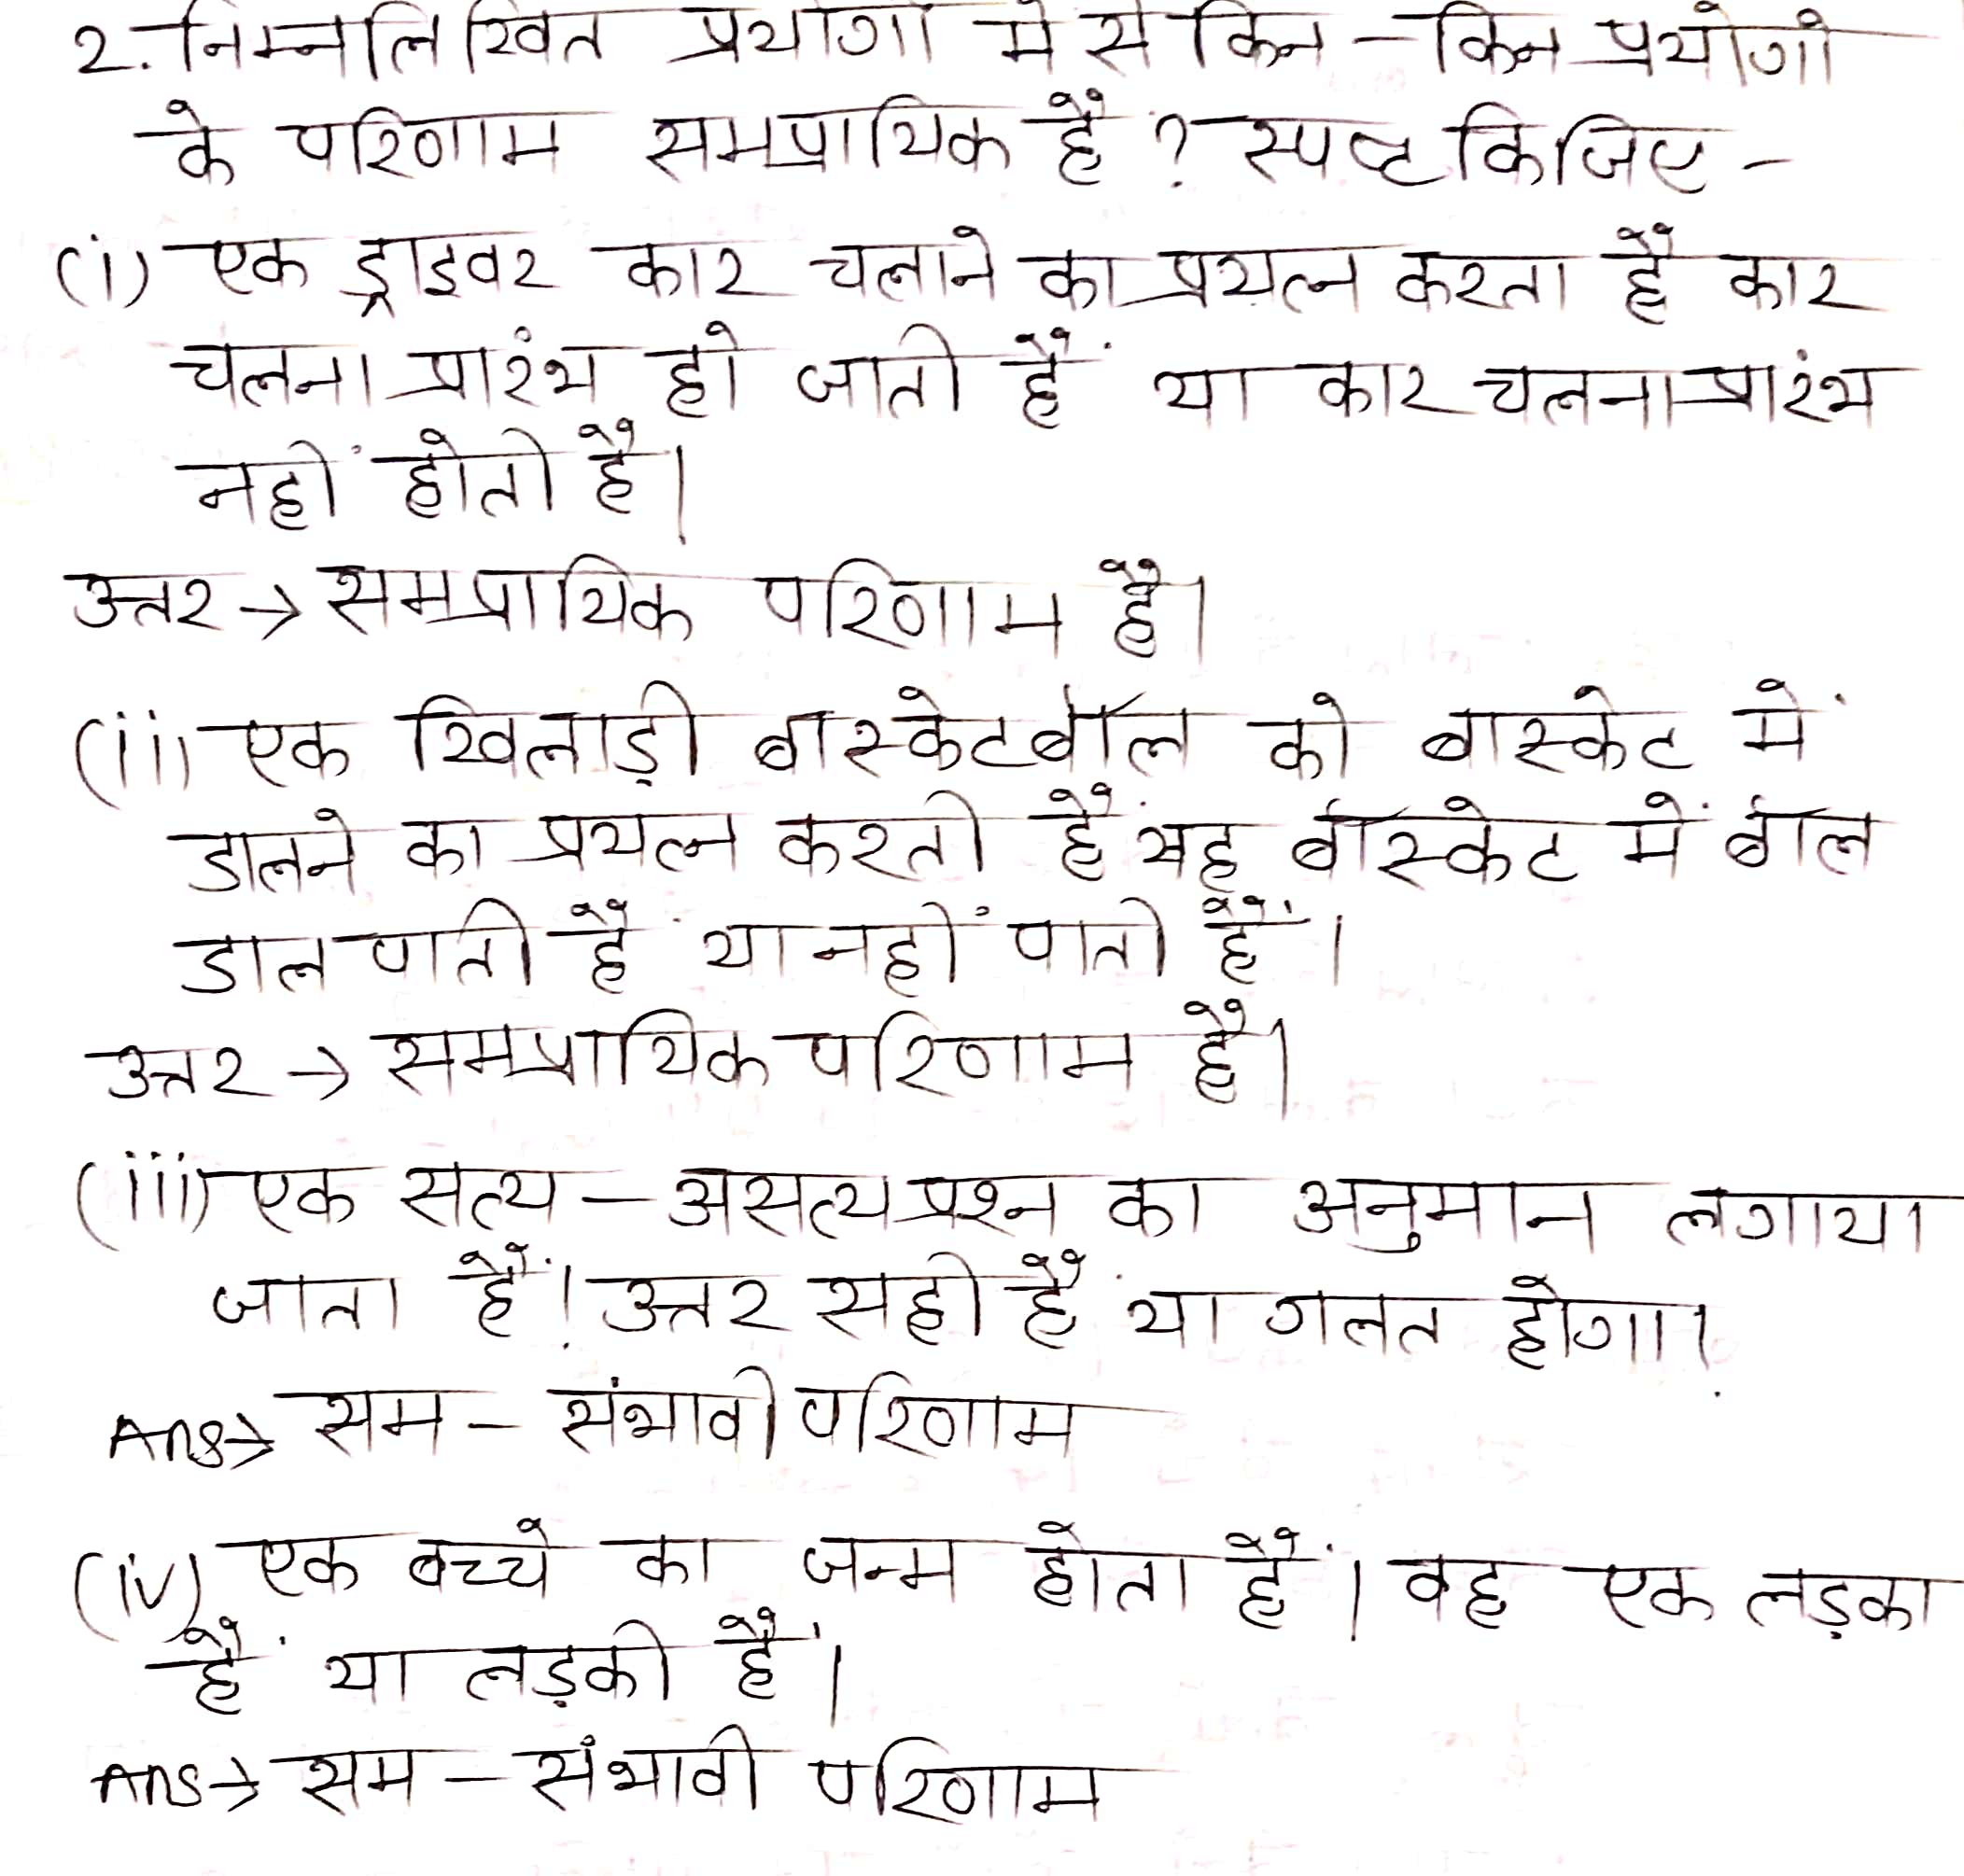 2. निम्नलिखित प्रयोगों में से किन - किन प्रयोगों
के परिणाम समप्रायिक है ? स्पष्ट किजिए -
(i) एक ड्राइवर कार चलाने का प्रयत्न करता है कार
चलना प्रारंभ हो जाती हैं या कार चलना प्रारंभ
नहीं होती है।
उत्तर → समप्रायिक परिणाम है।
(ii) एक खिलाड़ी बास्केटबॉल को बास्केट में
डालने का प्रयत्न करती हैं यह बॉस्केट में बॉल
डाल पाती हैं या नहीं पाती हैं।
उत्तर → समप्रायिक परिणाम है।
(iii) एक सत्य - असत्य प्रश्न का अनुमान लगाया
जाता हैं। उत्तर सही हैं या गलत होगा।
Ans→ सम - संभावी परिणाम
(iv) एक बच्चे का जन्म होता हैं। वह एक लड़का
हैं या लड़की हैं।
Ans→ सम - संभावी परिणाम